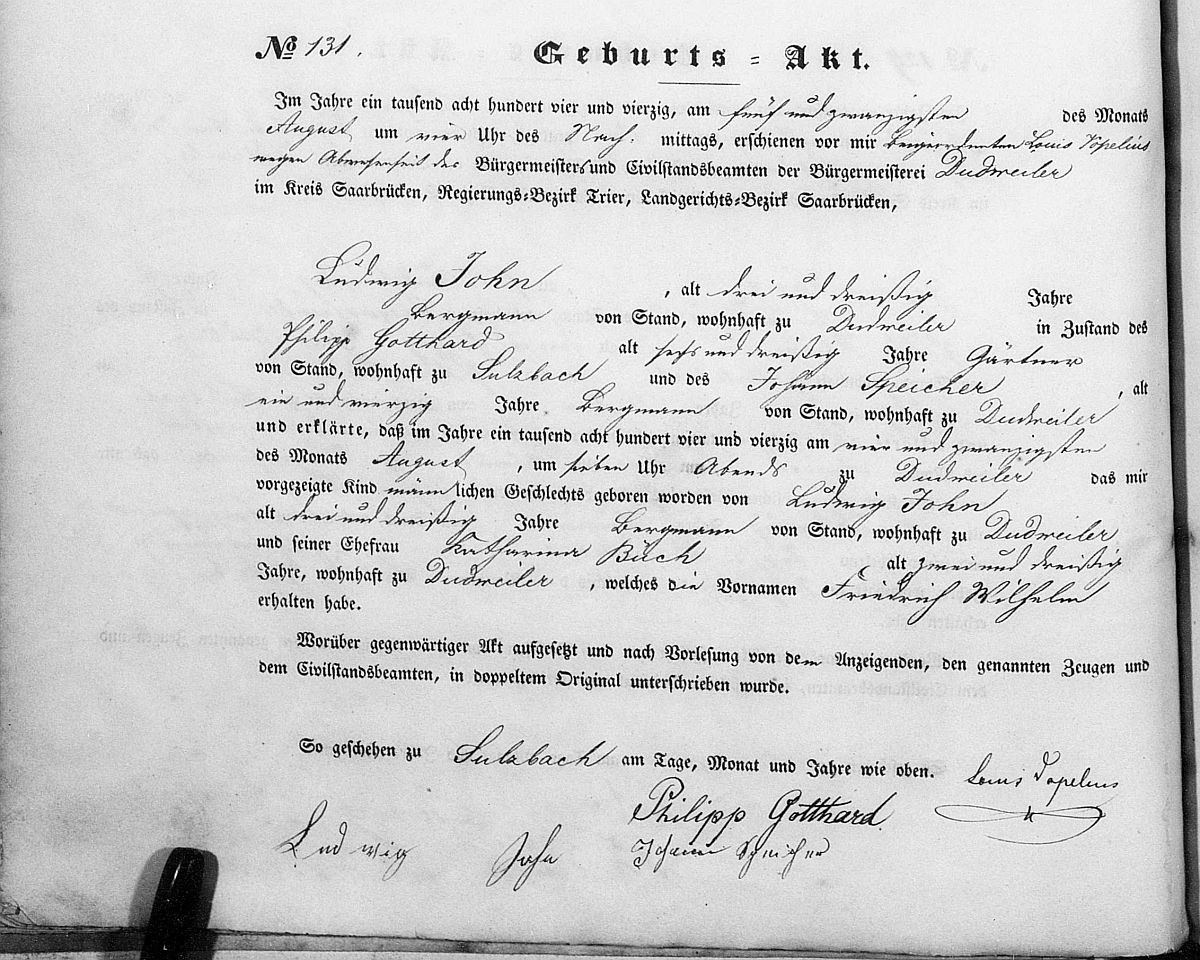 № 131.
Geburts = Akt.
Im Jahre ein tausend acht hundert vier und vierzig, am fünf und zwanzigsten des Monats
August um vier Uhr des Nach. mittags, erschienen vor mir Beigeordneten Louis Vopelius
wegen Abwesenheit des Bürgermeisters und Civilstandsbeamten der Bürgermeisterei Dudweiler
im Kreis Saarbrücken, Regierungs=Bezirk Trier, Landgerichts=Bezirk Saarbrücken,
Ludwig John, alt drei und dreißig Jahre
Bergmann von Stand, wohnhaft zu Dudweiler in Zustand des
Philipp Gotthard alt sechs und dreißig Jahre Gärtner
von Stand, wohnhaft zu Sulzbach und des Johann Speicher, alt
ein und vierzig Jahre Bergmann von Stand, wohnhaft zu Dudweiler
und erklärte, daß im Jahre ein tausend acht hundert vier und vierzig am vier und zwanzigsten
des Monats August, um sieben Uhr Abends zu Dudweiler das mir
vorgezeigte Kind männlichen Geschlechts geboren worden von Ludwig John
alt drei und dreißig Jahre Bergmann von Stand, wohnhaft zu Dudweiler
und seiner Ehefrau Katharina Buch alt zwei und dreißig
Jahre, wohnhaft zu Dudweiler, welches die Vornamen Friedrich Wilhelm
erhalten habe.
Worüber gegenwärtiger Akt aufgesetzt und nach Vorlesung von dem Anzeigenden, den genannten Zeugen und
dem Civilstandsbeamten, in doppeltem Original unterschrieben wurde.
So geschehen zu Sulzbach am Tage, Monat und Jahre wie oben. Louis Vopelius
Philipp Gotthard.
Ludwig John Johann Speicher